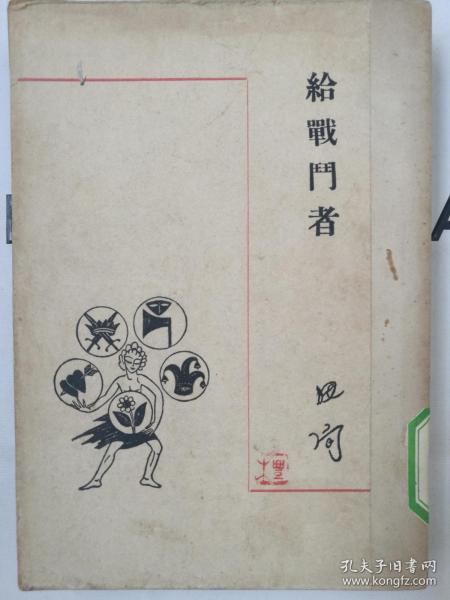 給戰鬥者
田間
孔夫子旧书网
www.kongfz.com